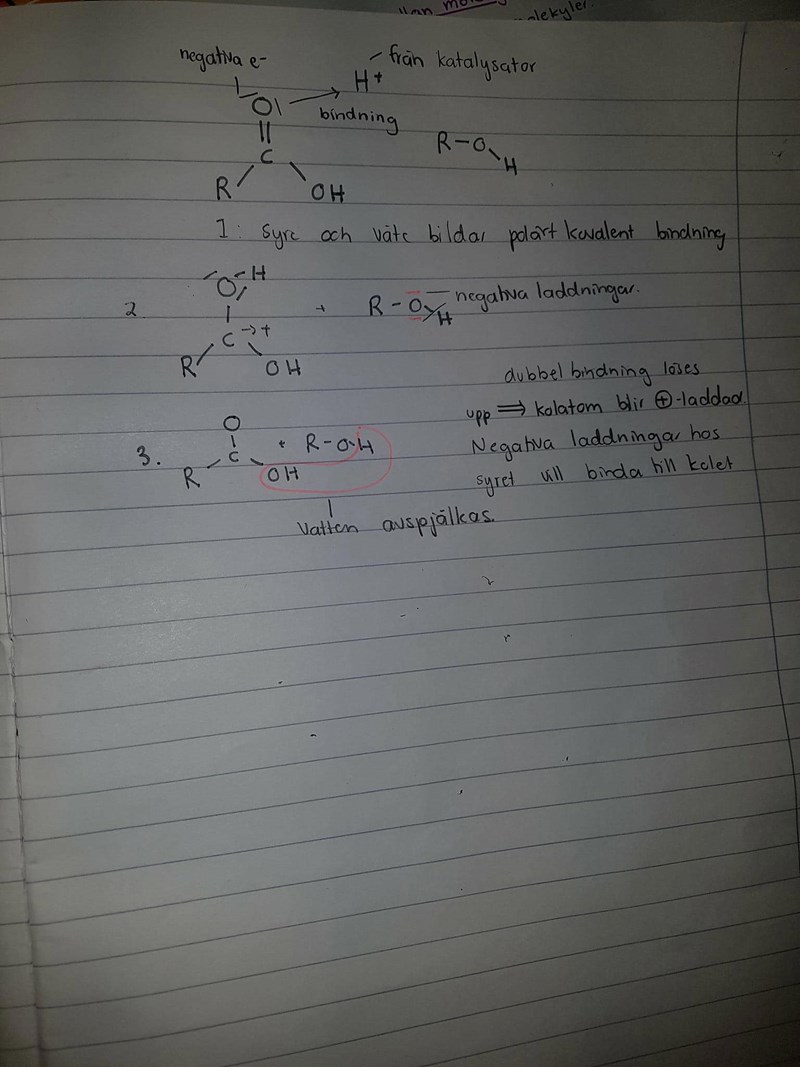 molekyler.
negativa e-
från katalysator
H+
O
bindning
R-O
H
C
R
OH
1: syre och väte bildar polärt kovalent bindning
O-H
2
+ R-O
H
negativa laddningar.
C→+
R
OH
dubbel bindning löses
upp ⇒ kolatom blir ⊕-laddad.
Negativa laddningar hos
syret vill binda till kolet
O
3.
C + R-O-H
R
OH
Vatten avspjälkas.